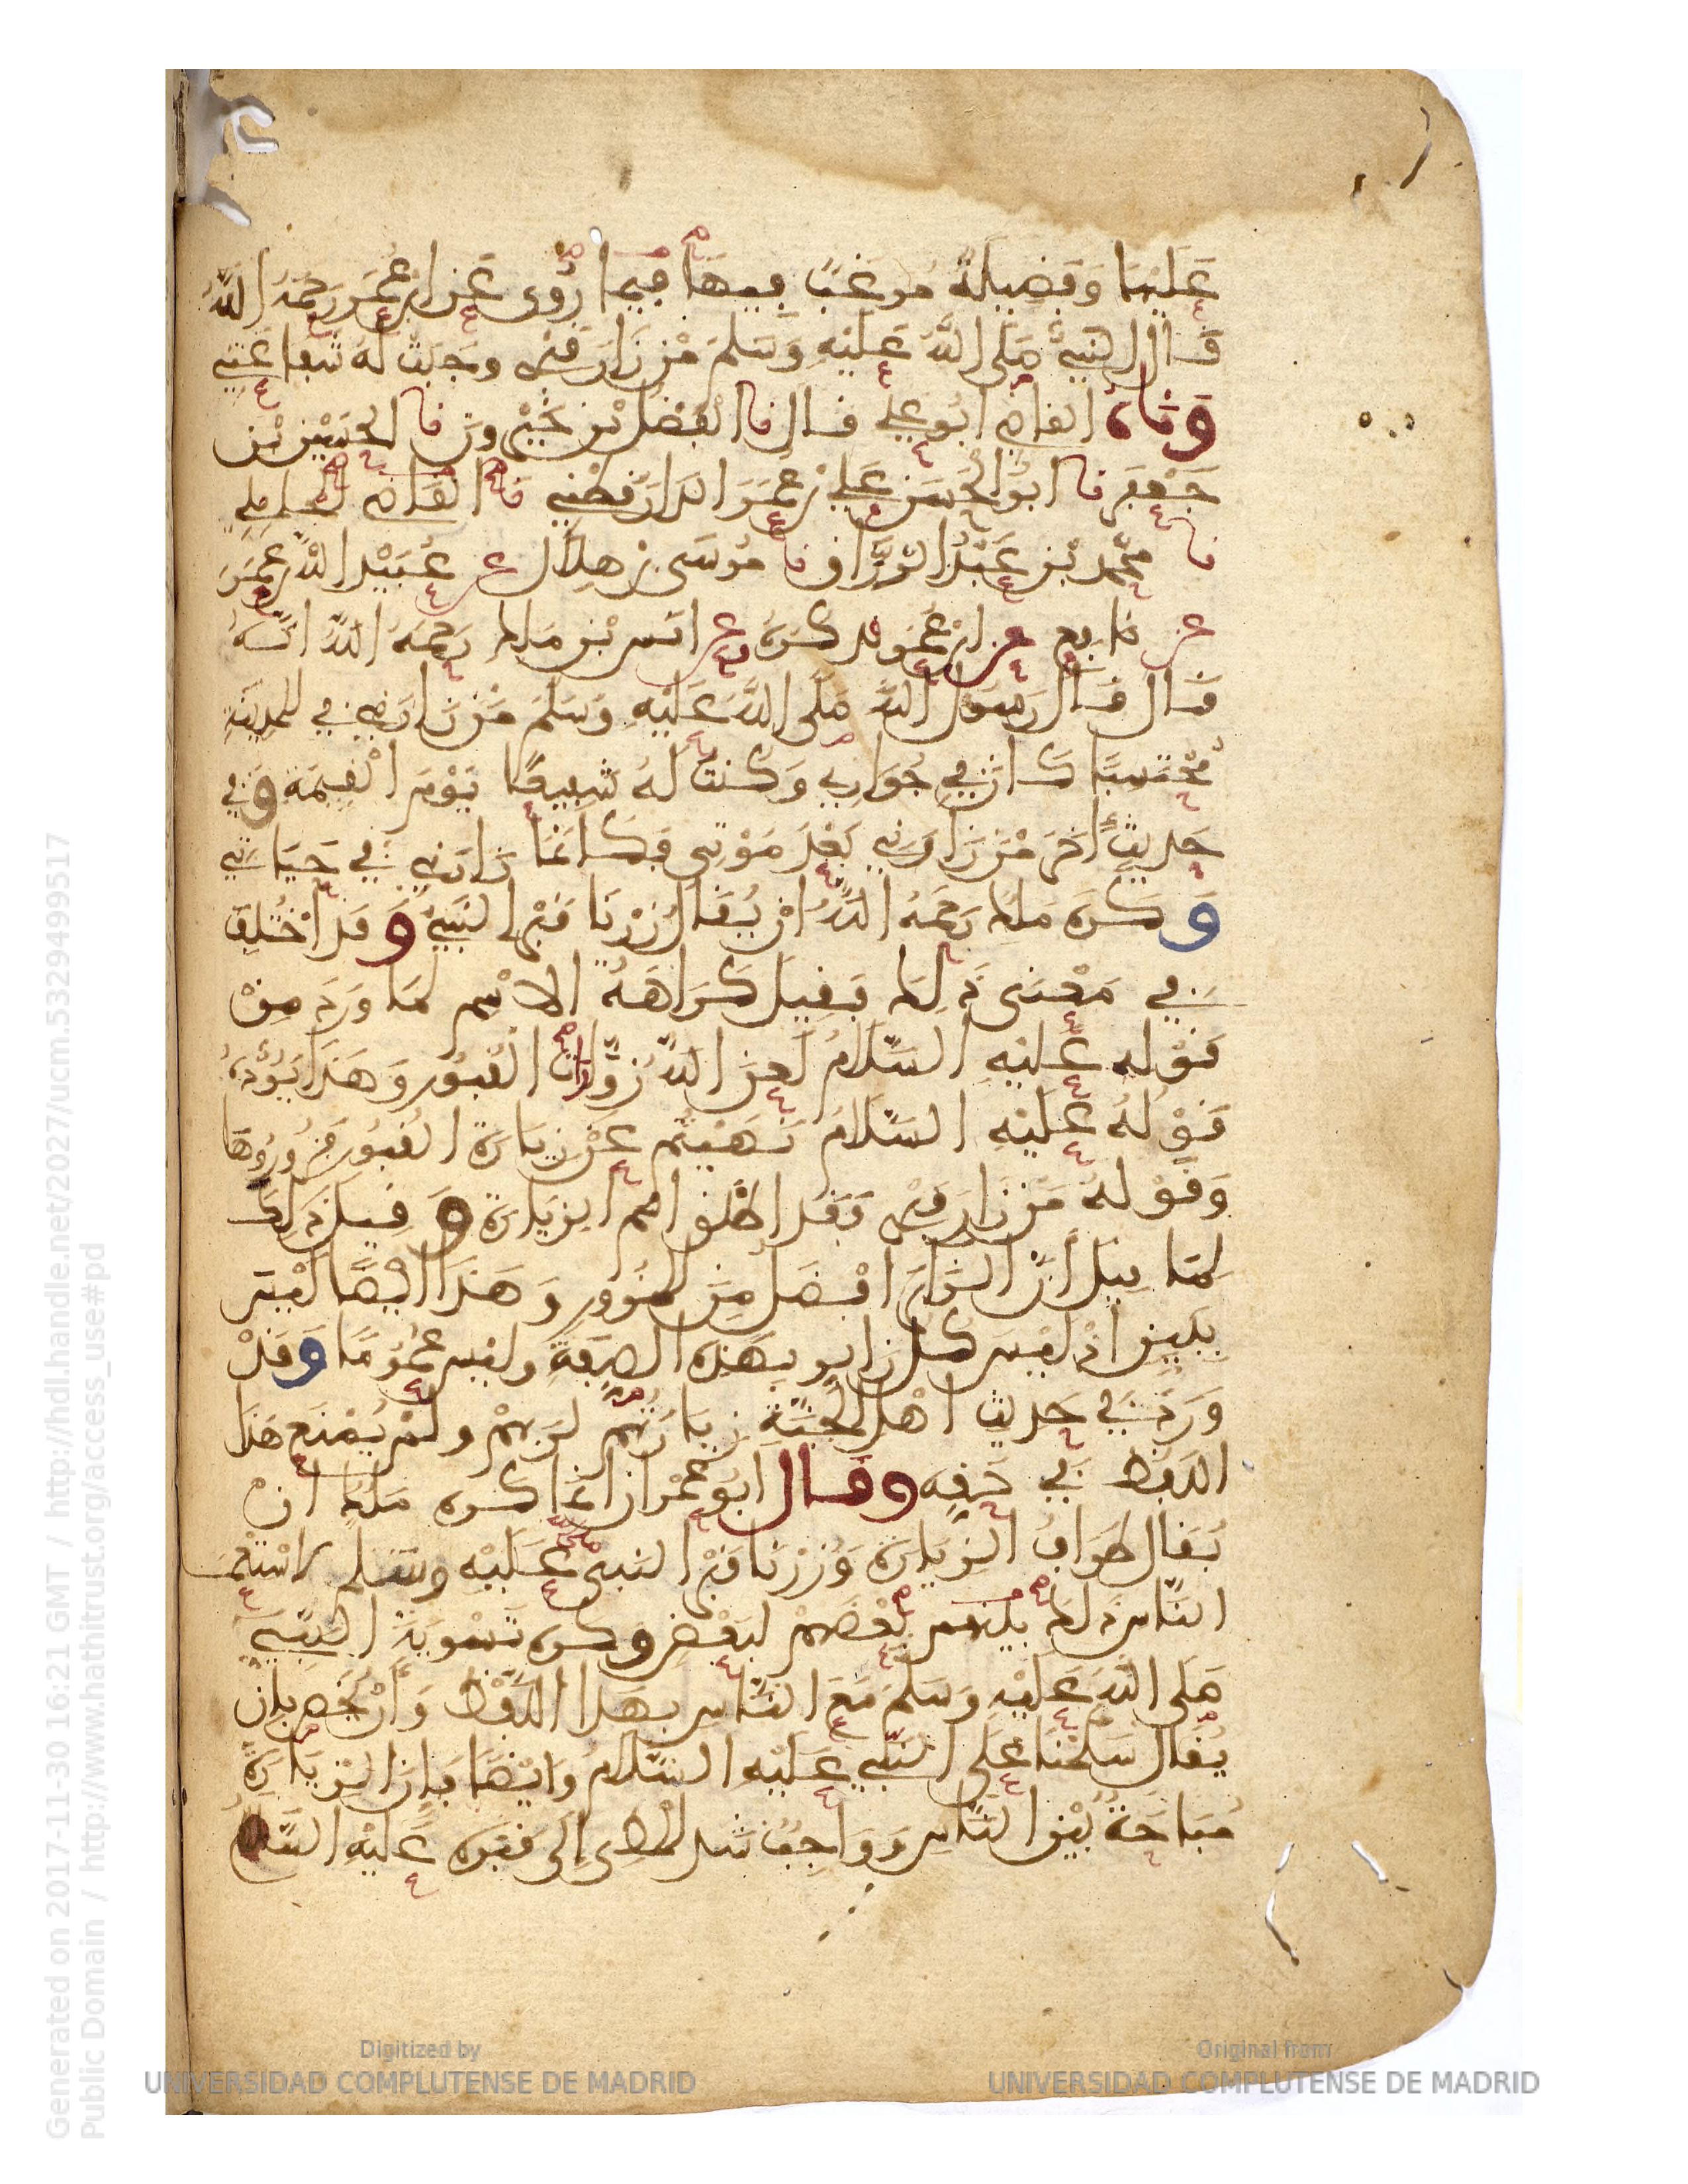 عَلَيْهَا وَفَضِيلَةٌ مُرَغَّبٌ فِيهَا فيما رُوِى عَنِ ابْنِ عُمَرَ رَحِمَهُ اللَّهُ
قَالَ النَّبِيُّ صَلَّى اللَّهُ عَلَيْهِ وَسَلَّمَ مَنْ زَارَ قَبْرِي وجبت لَهُ شَفَاعَتِي
وَنا القاضي ابُو علي قال نا ابُو الْفَضْلِ بْنُ خَيْرُونَ نا الحسين بْن
جَعْفَر نا ابُو الْحَسَنِ عَلِي بْن عُمَرَ الدَّارَقُطْنِي نا القَاضِي المحاملي
نا مُحَمَّد بْن عَبْدِ الرَّزَّاق نا مُوسَى بْن هِلَال عن عُبَيْد اللَّه بْن عُمَرَ
عن نَافِع عن ابْنِ عُمَر فذكره وعن انس بْن ملك رَحِمَهُ اللَّهُ انَّهُ
قَالَ قَالَ رَسُولُ اللَّهِ صَلَّى اللَّهُ عَلَيْهِ وَسَلَّمَ مَنْ زَارَنِي فِي المدينة
مُحْتَسِبًا كَانَ فِي جُوَارِي وَكُنْتُ لَهُ شَفِيعًا يَوْمَ الْقِيَمَةِ وَفِي
حَدِيثٍ اخَر مَنْ زَارَنِي بَعْدَ مَوْتِي فَكَانَّمَا زَارَنِي فِي حَيَاتِي
وَكَرِهَ مَلِكٌ رَحِمَهُ اللَّهُ انْ يُقَالَ زُرْنَا قَبْرَ النَّبِيِّ وَقَد اخْتُلِفَ
فِي مَعْنَى ذَلِكَ فَقِيلَ كَرَاهَةُ الِاسْمِ لِمَا وَرَدَ مِنْ
قَوْلِهِ عَلَيْهِ السَّلَامُ لعن اللَّه زُوَّارَاتِ الْقُبُورِ وَهَذَا يَرُدُّهُ
قَوْلُهُ عَلَيْهِ السَّلَامُ نَهَيْتُكُمْ عَنْ زِيَارَةِ القُبُورِ فَزُورُوهَا
وَقَوْلُهُ مَنْ زَارَ قَبْرِي فَقَد اطْلَقَ اسم الزِيَارَة وَقِيلَ ذَلِكَ
لِمَا قيل أَنَّ الزَّائِرَ افْضَل مِنَ المزور وَهَذَا ايْضًا لَيْسَ
بِشَيْءٍ اذْ لَيْسَ كُلُّ زَايِرٍ بِهَذِهِ الصِّفَةِ وَلَيْسَ عُمُومًا وَقَدْ
وَرَدَ فِي حَدِيث اهْلِ الْجَنَّةِ زِيَارَتُهُمْ لِرَبِّهِمْ وَلَمْ يُمْنَعْ هَذَا
اللَّفْظُ فِي حَقِّهِ وقال ابُو عِمْرَان انَّمَا كَرِهَ مَلِكٌ انْ
يُقَالَ طَوَافُ الزِّيَارَةِ وَزُرْنَا قَبْرَ النَّبِي صلى عَلَيْهِ وَسَلَّم لاسْتِعْمَال
النَّاسِ ذَلِكَ بَيْنَهُمْ بَعْضُهُمْ لِبَعْضٍ وَكَرِهَ تَسْوِيَةَ النَّبِيِّ
صَلَى اللَّهُ عَلَيْهِ وَسَلَّمَ مَعَ النَّاسِ بِهَذَا اللَّفْظِ وَأَنْ يُخَصَّ بِانْ
يُقَالَ سَلَّمْنَا عَلَى النَّبِي عَلَيْهِ السَّلَامُ وَايْضًا فَإِنَّ الزِّيَارَةَ
مُبَاحَةٌ بَيْنَ النَّاسِ وَوَاجِبٌ شد المطى إِلَى قَبْرِهِ عَلَيْهِ السَّلَامُ
Generated on 2017-11-30 16:21 GMT / http://hdl.handle.net/2027/ucm.5329499517
Public Domain / http://www.hathitrust.org/access_use#pd
Digitized by
UNIVERSIDAD COMPLUTENSE DE MADRID
Original from
UNIVERSIDAD COMPLUTENSE DE MADRID